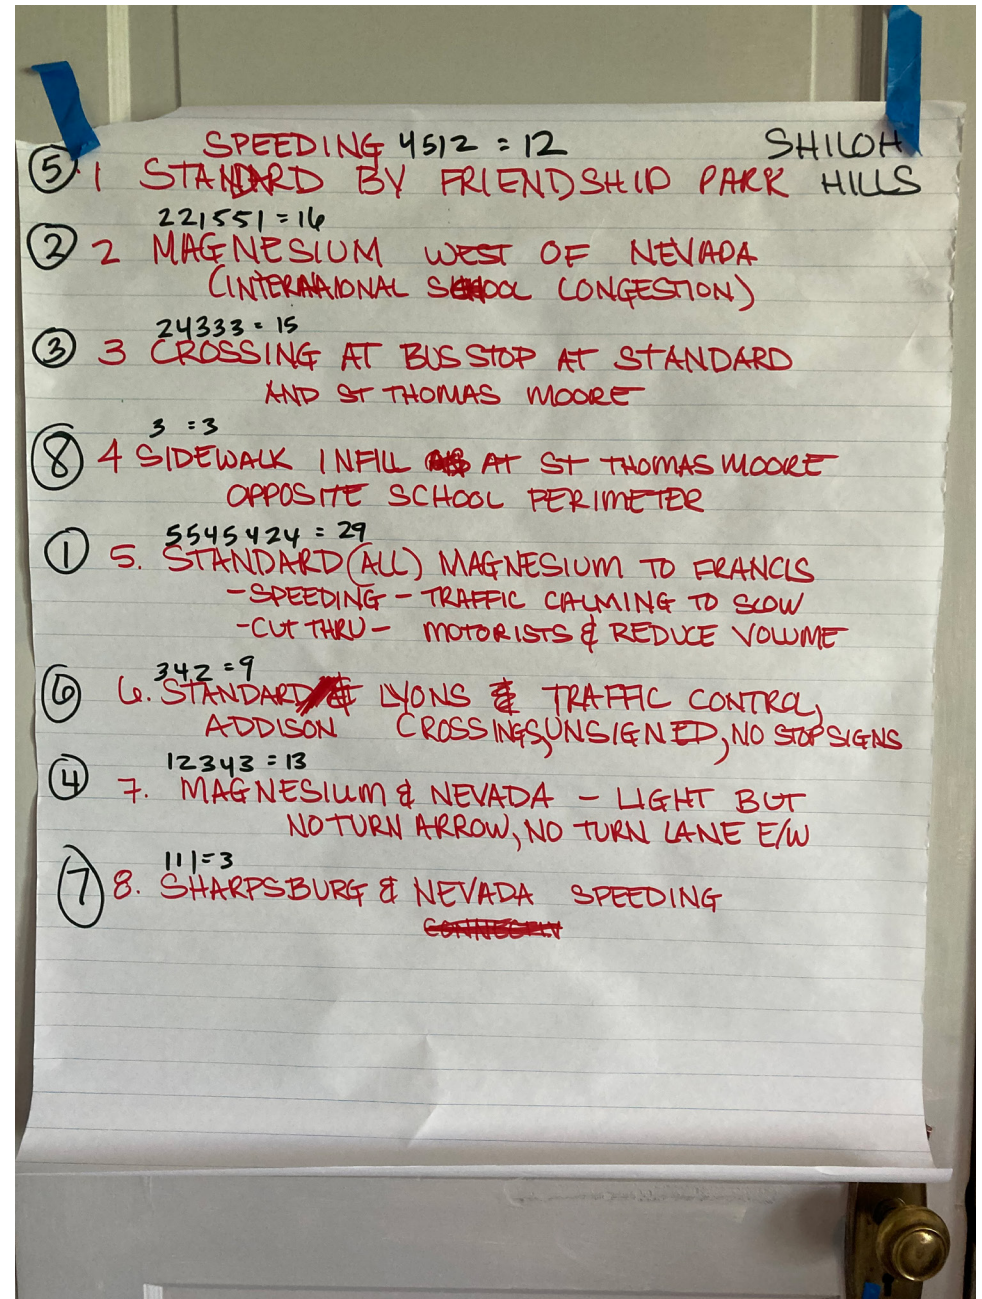 SPEEDING 4512 = 12 SHILOH
5 1 STANDARD BY FRIENDSHIP PARK HILLS
221551 = 16
2 2 MAGNESIUM WEST OF NEVADA
(INTERNAIONAL SCHOOL CONGESTION)
24333 = 15
3 3 CROSSING AT BUS STOP AT STANDARD
AND ST THOMAS MOORE
3 = 3
8 4 SIDEWALK INFILL AT ST THOMAS MOORE
OPPOSITE SCHOOL PERIMETER
5545424 = 29
1 5. STANDARD (ALL) MAGNESIUM TO FRANCIS
- SPEEDING - TRAFFIC CALMING TO SLOW
- CUT THRU - MOTORISTS & REDUCE VOLUME
342 = 9
6 6. STANDARD & LYONS & TRAFFIC CONTROL,
ADDISON CROSSINGS, UNSIGNED, NO STOP SIGNS
12343 = 13
4 7. MAGNESIUM & NEVADA - LIGHT BUT
NO TURN ARROW, NO TURN LANE E/W
111 = 3
7 8. SHARPSBURG & NEVADA SPEEDING